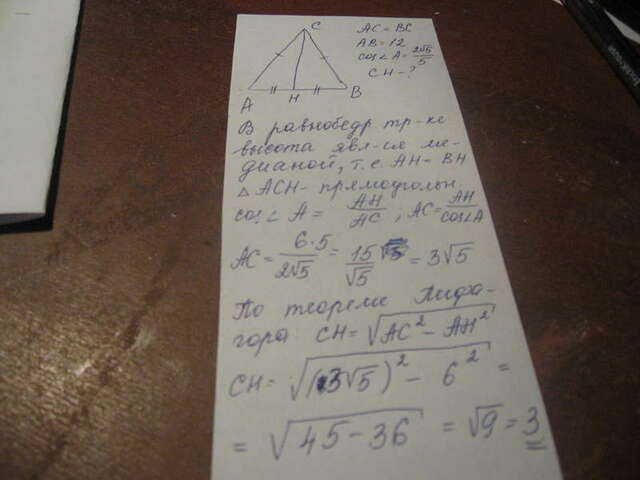 C
A H B
AC = BC
AB = 12
cos∠A = 2√5/5
CH - ?
В равнобедр тр-ке
высота явл-ся ме-
дианой, т.е. AH = BH
△ ACH - прямоугольн
cos∠A = AH/AC ; AC = AH/cos∠A
AC = 6·5/2√5 = 15/√5 = 3√5
По теореме Пифа-
гора: CH = √(AC² - AH²)
CH = √((3√5)² - 6²) =
= √(45 - 36) = √9 = 3